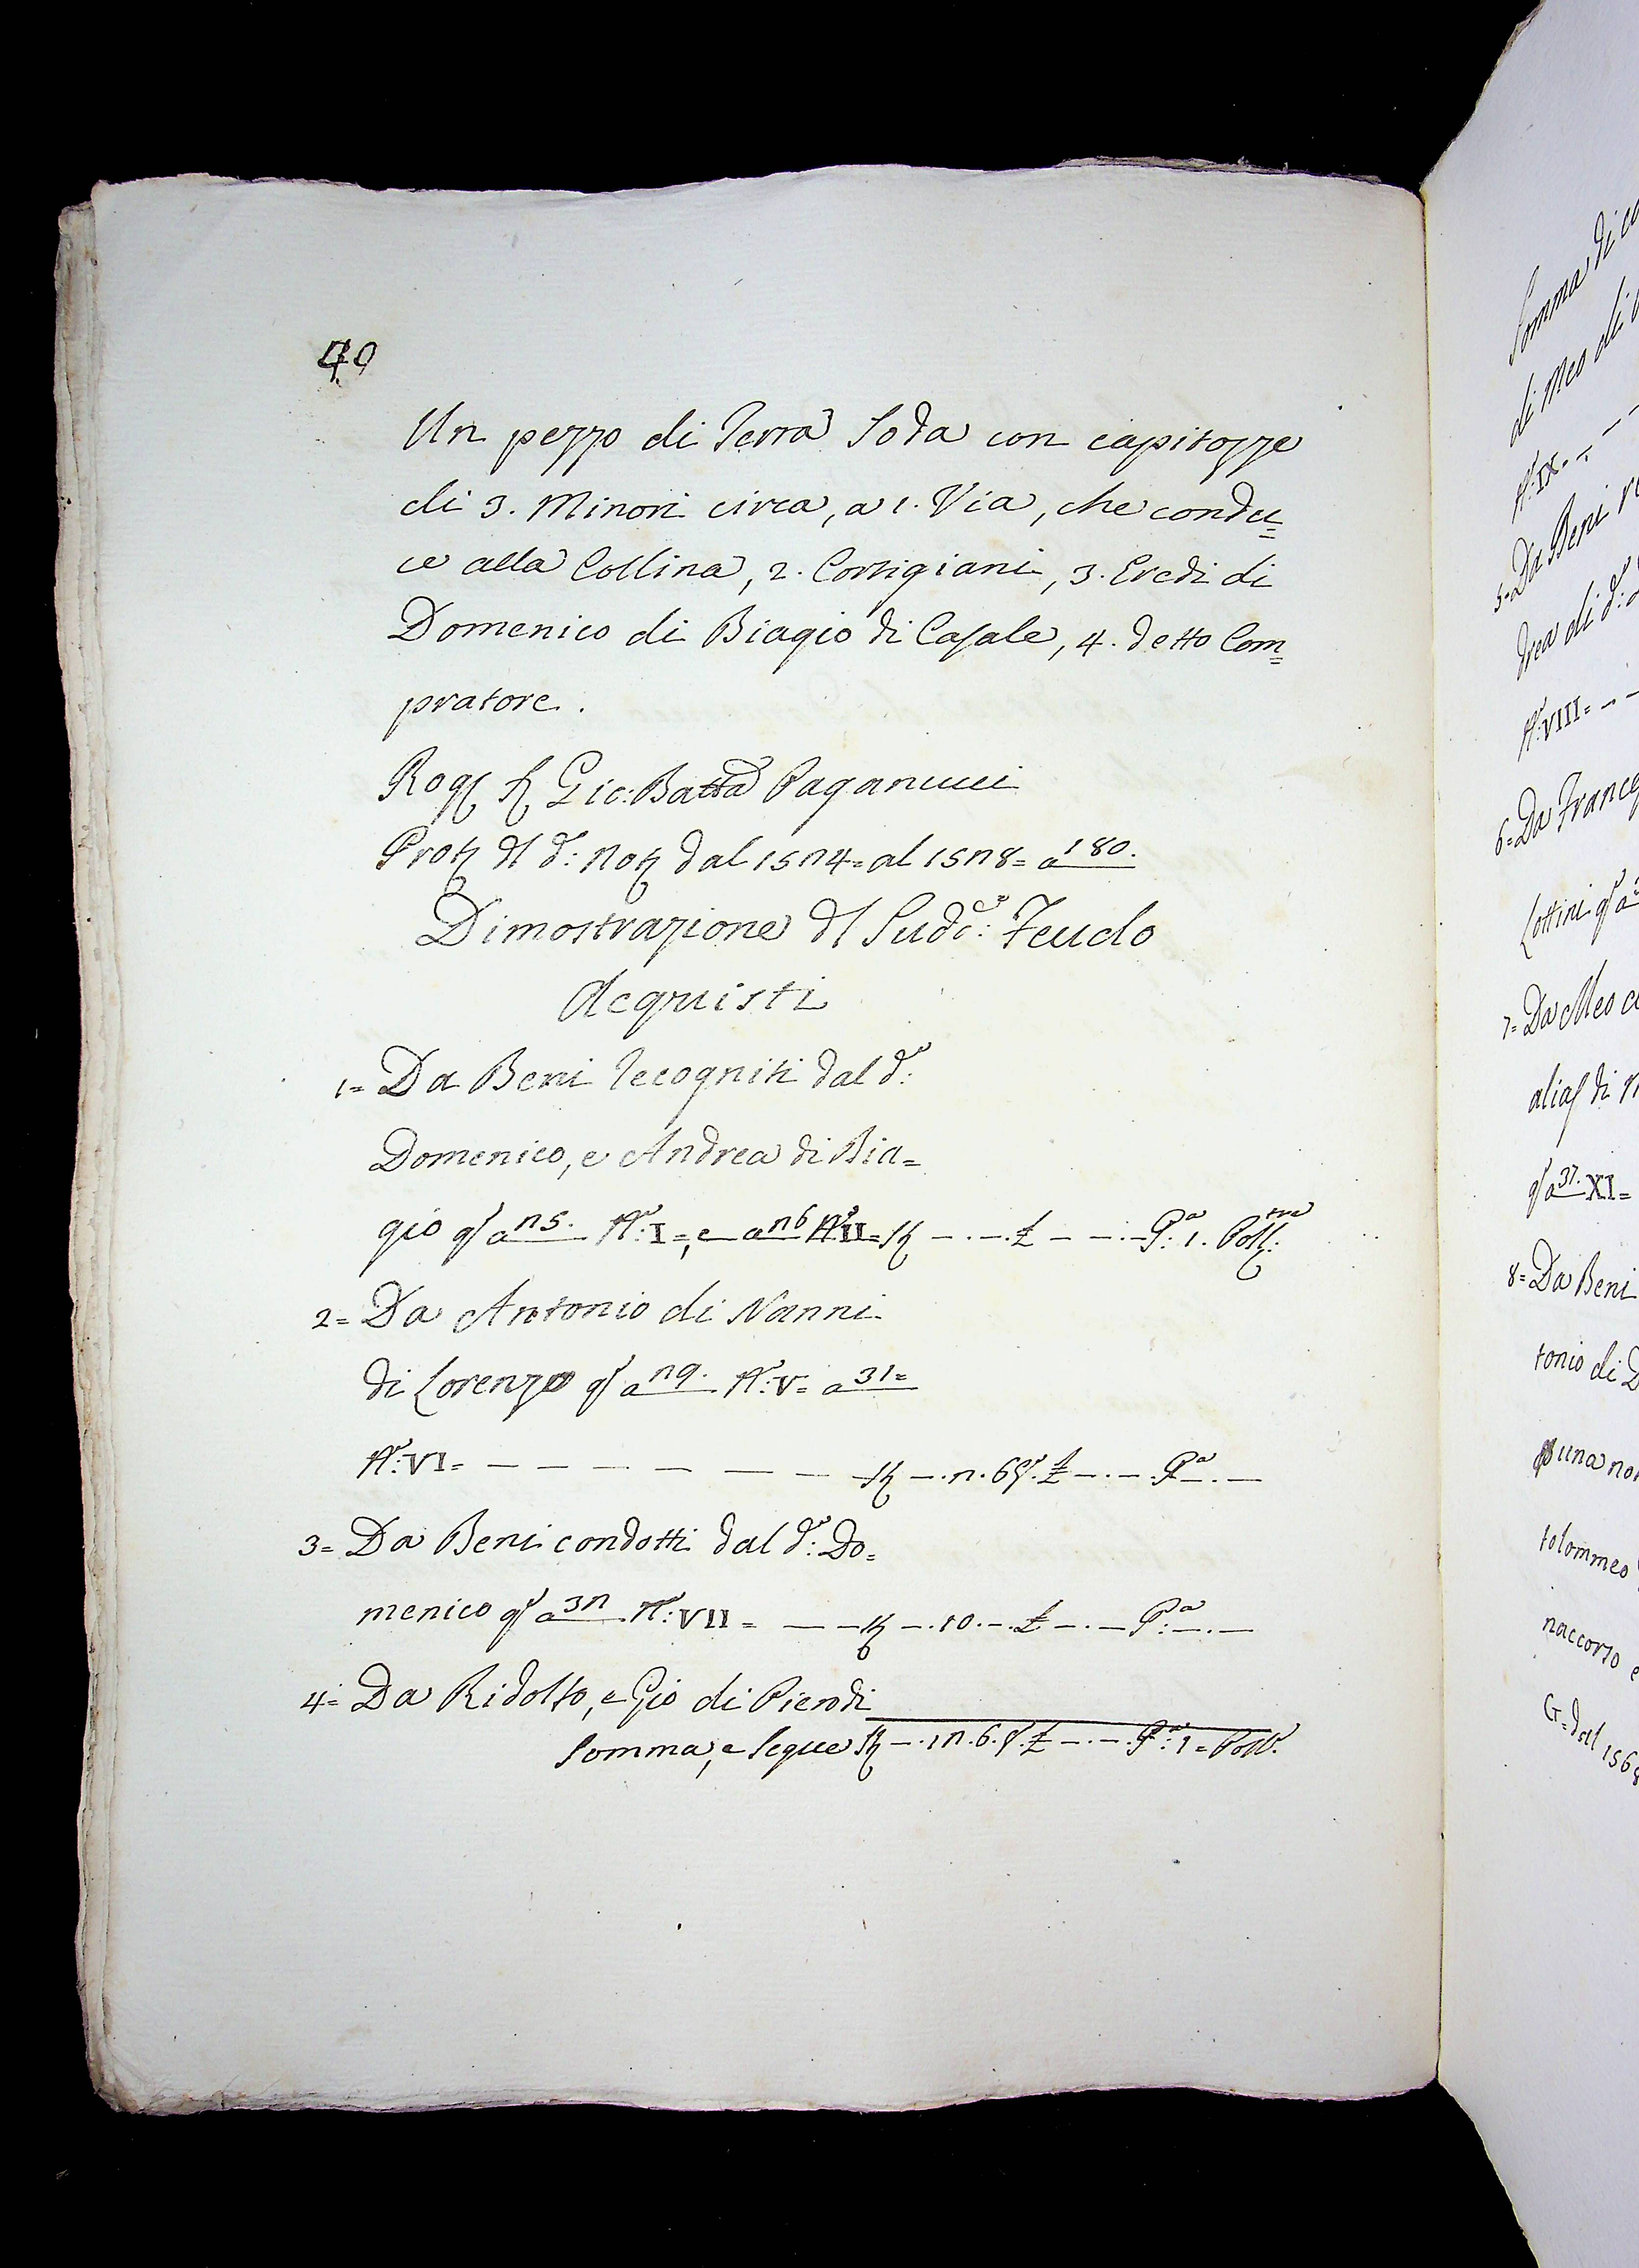 40
Un pezzo di Terra Soda con capitozze
di 3. Minori circa, a 1. Via, che condu=
ce alla Collina, 2. Corsigiani, 3. Eredi di
Domenico di Biagio di Casale, 4. detto Com=
pratore.
Rog Gio: Batta Paganucci
Prot dl d: Not dal 1574= al 1578= a 180.
Dimostrazione dl Sudo: Feudo
Acquisti
1= Da Beni recogniti dal do:
Domenico, e Andrea di Bia=
gio qto a 25. No: I=, e a 26 No: II= St -.-.£ - -.- Pa: 1. Poll:
2= Da Antonio di Nanni
di Lorenzo qto a 29. No: V= a 31=
No: VI= - - - - - - - St -.2.6 £ -.-. Pa -.-
3= Da Beni condotti dal do: Do=
menico qto a 32 No: VII= - - St -.10.-.£ -.- Pa: -.-
4= Da Ridolfo, e Gio di Piero di
Somma, e segue St -.12.6. £ -.-. Pa: 1= Poll.
Somma di
di Meo di
No: IX=
5= Da Beni
drea di do:
No: VIII=
6= Da
Lottini qto a
7= Da Meo
alias di
qto a 37. XI=
8= Da Beni
tonio di
una
tolommeo
naccorso e
G= dal 156